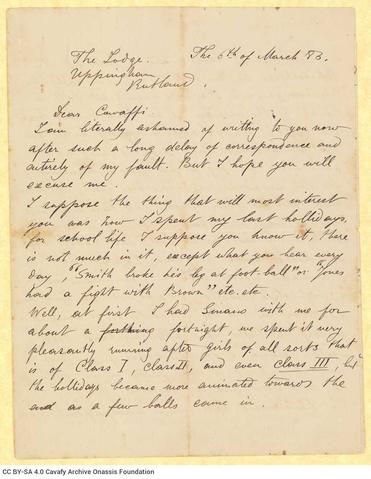 The Lodge. The 6th of March 83.
Uppingham
Rutland.
Dear Cavaffi
I am literally ashamed of writing to you now
after such a long delay of correspondence and
entirely of my fault. But I hope you will
excuse me.
I suppose the thing that will most interest
you was how I spent my last hollidays,
for school life I suppose you know it, there
is not much in it, except what you hear every
day, "Smith broke his leg at foot-ball" or "Jones
had a fight with Brown" etc. etc.
Well, at first I had with me for
about a forthing fortnight, we spent it very
pleasantly running after girls of all sorts that
is of Class I, Class II, and even Class III, but
the hollidays became more animated towards the
end as a few balls came in.
CC BY-SA 4.0 Cavafy Archive Onassis Foundation